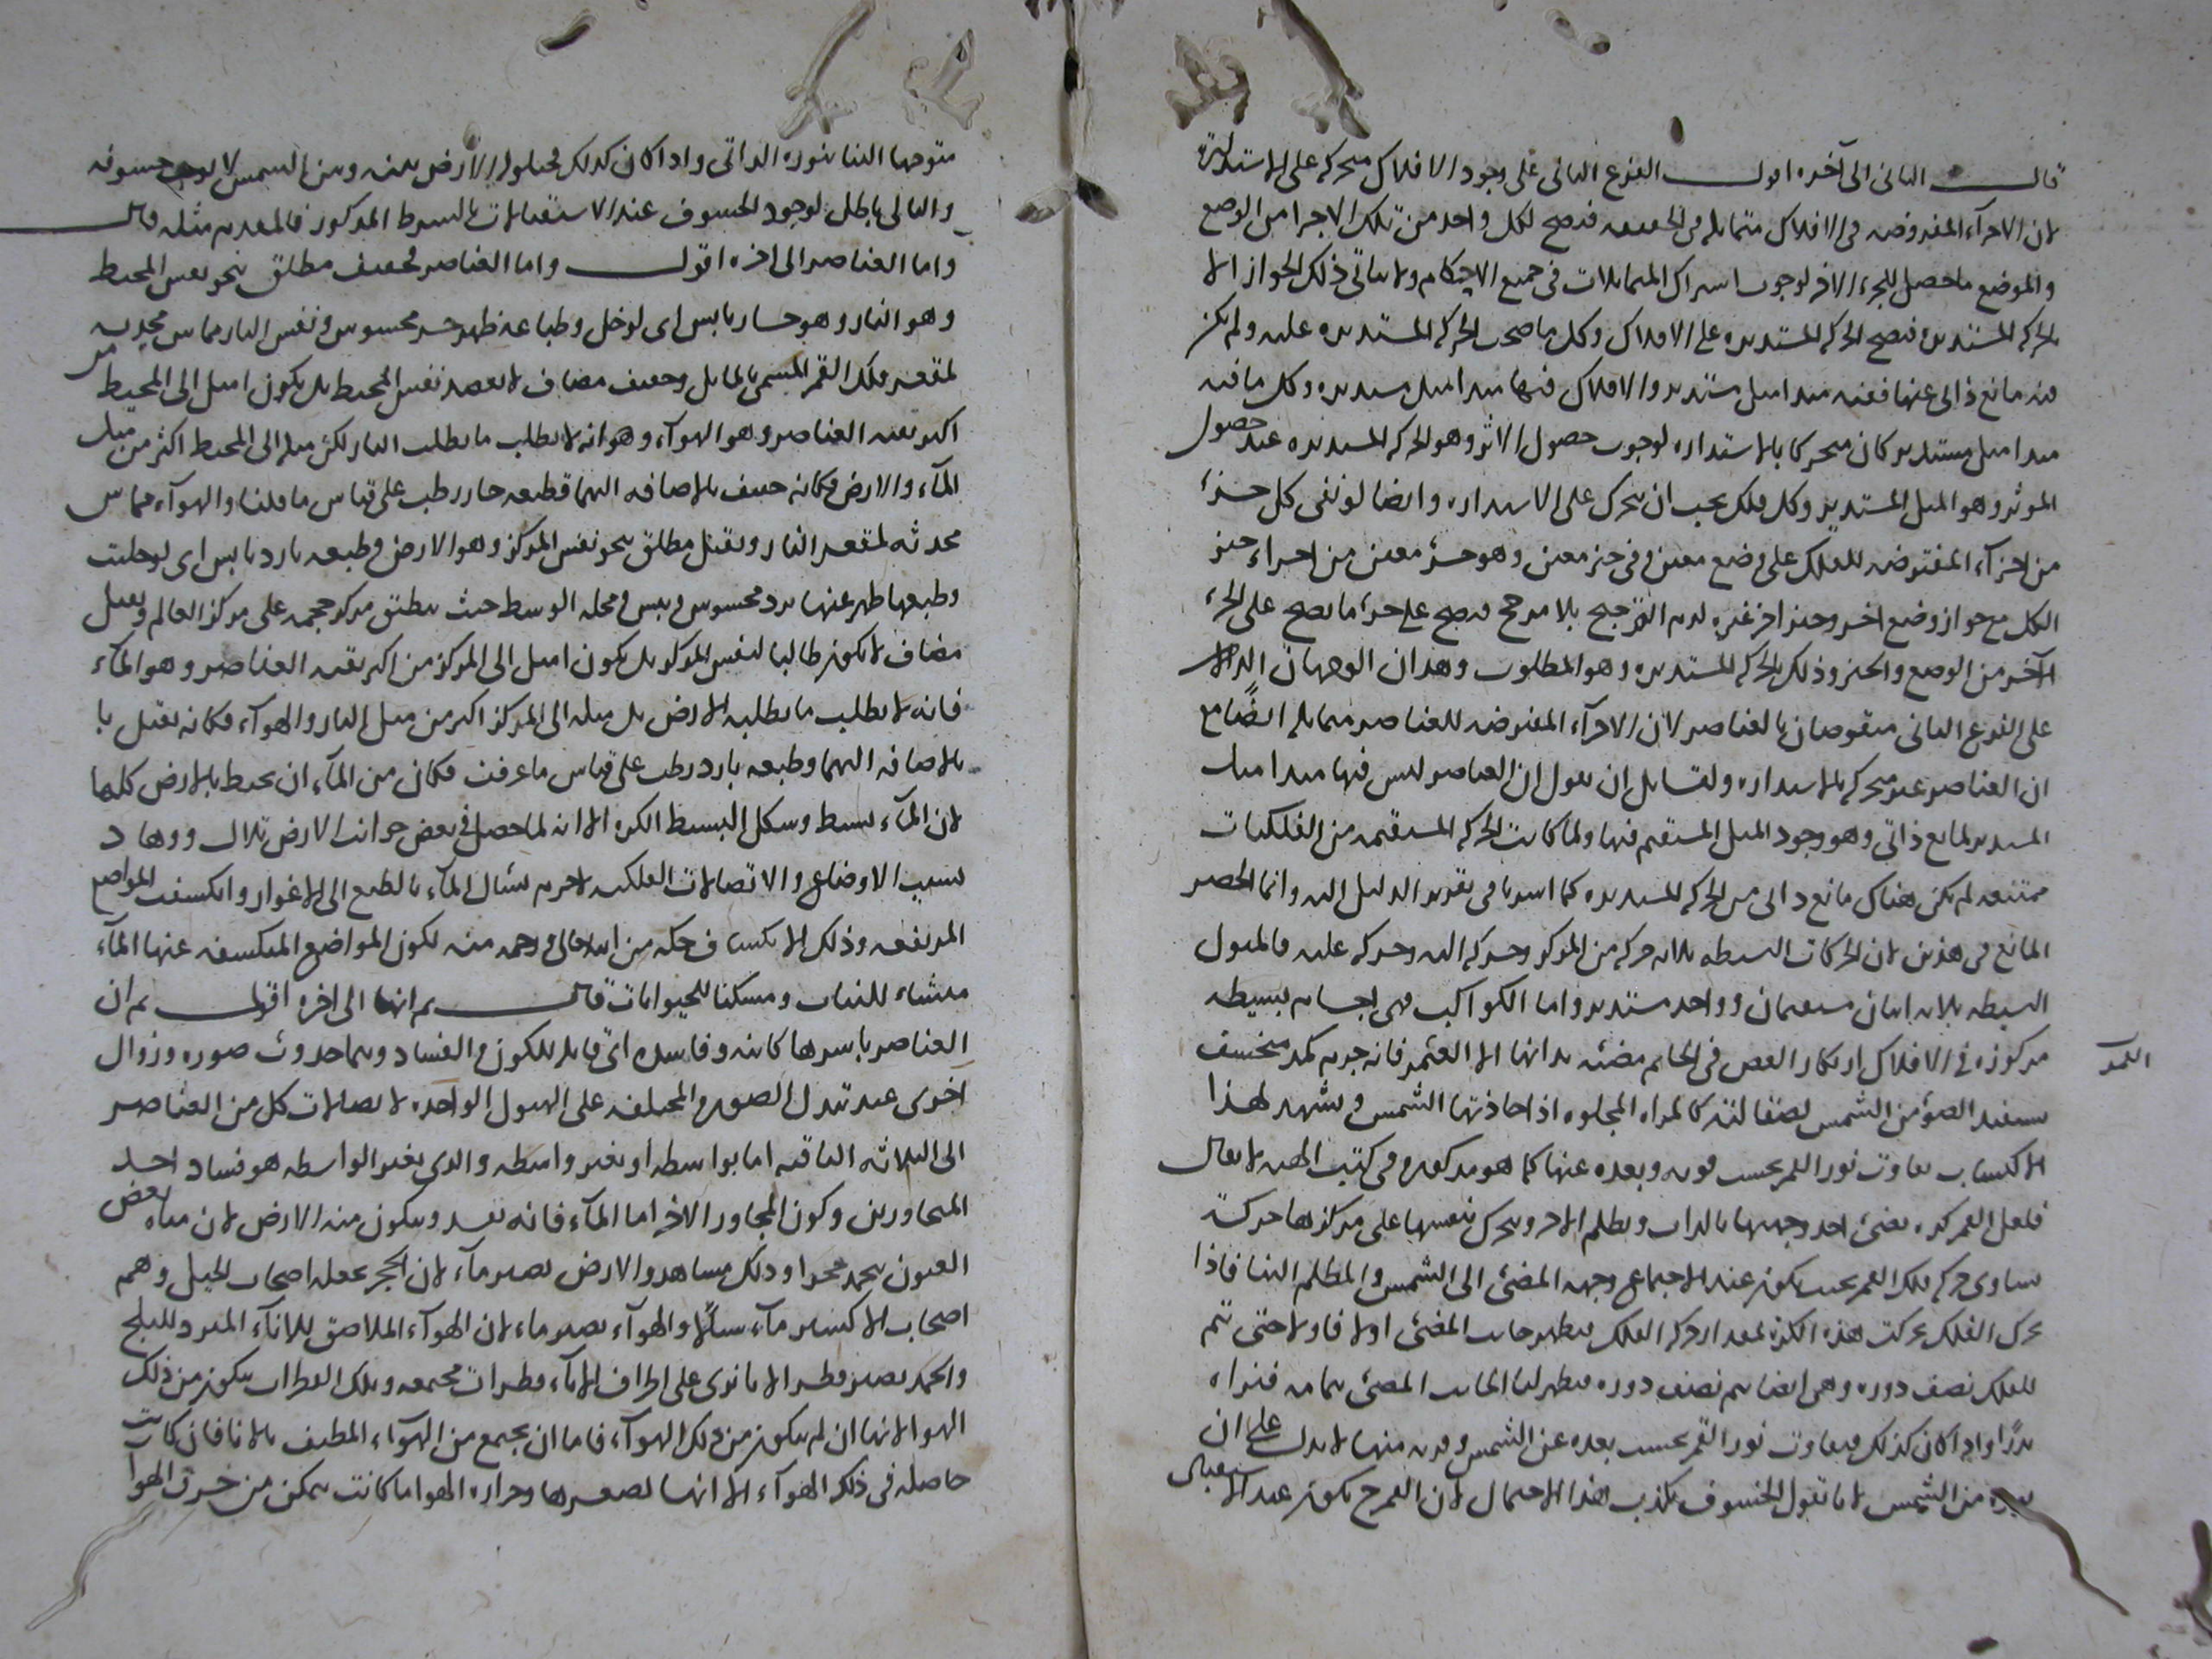 قال الثانى الى آخره اقول الفرع الثانى على وجود الافلاك متحركه على الاستداره
لان الاجزآء المفروضه فى الافلاك متماثله فى الحقيقه فيصح لكل واحد من تلك الاجزا من الوضع
والموضع ما حصل للجزء الاخر لوجوب اشتراك المتماثلات فى جميع الاحكام ولا يتاتى ذلك الجواز الا
بالحركه المستديره فيصح الحركه المستديره على الافلاك وكل ما صحت الحركه المستديره عليه ولم يكن
فيه مانع ذاتى عنها ففيه مبدا ميل مستدير والافلاك فيها مبدا ميل مستدير وكل ما فيه
مبدا ميل مستدير كان متحركا بالاستداره لوجوب حصول الاثر وهو الحركه المستديره عند حصول
الموثر وهو الميل المستدير وكل فلك يجب ان يتحرك على الاستداره وايضا لو بقى كل جزء
من اجزآء المفروضه للفلك على وضع معين وفى حيز معين وهو جزء معين من اجزاء حيز
الكل مع جواز وضع اخر وحيز اخر غيره لزم الترجيح بلا مرجح فيصح على جزء ما يصح على الجزء
الآخر من الوضع والحيز وذلك بالحركه المستديره وهو المطلوب وهذان الوجهان الدالان
على الفرع الثانى منقوضان بالعناصر لان الاجزآء المفروضه للعناصر متماثله ايضًا مع
ان العناصر غير متحركه بالاستداره ولقايل ان يقول ان العناصر ليس فيها مبدا ميل
المستدير لمانع ذاتى وهو وجود الميل المستقيم فيها ولما كانت الحركه المستقيمه من الفلكيات
ممتنعه لم يكن هناك مانع ذاتى من الحركه المستديره كما اشرنا فى تقرير الدليل اليه وانما الحصر
المانع فى هذين لان الحركات البسيطه ثلاثه حركه من المركز وحركه اليه وحركه عليه فالميول
البسيطه ثلاثه اثنان مستقيمان وواحد مستدير واما الكواكب فهى اجسام بسيطه
مركوزه فى الافلاك ارتكاز الفص فى الخاتم مضئه بذاتها الا القمر فانه جرم كمد منخسف
يستفيد الضوء من الشمس لصقالته كالمراه المجلوه اذا حاذتها الشمس ويشهد لهذا
الاكتساب تفاوت نور القمر بحسب قربه وبعده عنها كما هو مذكور فى كتب الهيه لا يقال
فلعل القمر كره يضئ احد وجهيها بالذات ويظلم الاخر ويتحرك بنفسها على مركزها حركه
تساوى حركه فلك القمر بحيث يكون عند الاجتماع وجهه المضئ الى الشمس والمظلم الينا فاذا
تحرك الفلك تحركت هذه الكره بمقدار حركه الفلك فيظهر جانب المضئ اولا فاولا حتى تتم
للفلك نصف دوره وهى ايضا تتم نصف دوره فيظهر لنا الجانب المضئ بتمامه فنراه
بدرًا واذا كان كذلك فتفاوت نور القمر بحسب بعده عن الشمس وقربه منها لا يدل على ان
نوره من الشمس لانا نقول الخسوف يكذب هذا الاحتمال لان القمر ح يكون عند الاستقبال
القمر
متوجها الينا بنوره الذاتى واذا كان كذلك فحيلوله الارض بينه وبين الشمس لا يوجب خسوفه
والتالى باطل لوجود الخسوف عند الاستقبالات بالشرط المذكور فالمقدم مثله قال
واما العناصر الى اخره اقول واما العناصر فخفيف مطلق ينحو نفس المحيط
وهو النار وهو حار يابس اى لو خلى وطباعه ظهر حر محسوس ونفس النار مماس محدبه
لمقعر فلك القمر المسمى بالمايل وخفيف مضاف لا يقصد نفس المحيط بل يكون اميل الى المحيط من
اكثر بقيه العناصر وهو الهوآء وهو انه لا يطلب ما يطلب النار لكن ميله الى المحيط اكثر من ميل
المآء والارض فكانه خفيف بالاضافه اليهما فطبعه حار رطب على قياس ما قلنا والهوآء مماس
محدبه لمقعر النار وثقيل مطلق ينحو نفس المركز وهو الارض وطبعه بارد يابس اى لو خليت
وطبعها ظهر عنها برد محسوس ويبس ومحله الوسط حيث ينطبق مركز حجمه على مركز العالم وثقيل
مضاف لا يكون طالبا لنفس المركز بل يكون اميل الى المركز من اكثر بقيه العناصر وهو المآء
فانه لا يطلب ما يطلبه الارض بل ميله الى المركز اكثر من ميل النار والهوآء فكانه ثقيل با
بالاضافه اليهما وطبعه بارد رطب على قياس ما عرفت فكان من المآء ان يحيط بالارض كلها
لان المآء بسيط وشكل البسيط الكره الا انه لما حصل فى بعض جوانب الارض تلال ووهاد
بسبب الاوضاع والاتصالات الفلكيه لاجرم سال المآء بالطبع الى الاغوار وانكشفت المواضع
المرتفعه وذلك الانكشاف حكمه من الله تعالى ورحمه منه لكون المواضع المنكشفه عنها المآء
منشاء للنبات ومسكنا للحيوانات قال ثم انها الى اخره اقول ثم ان
العناصر باسرها كاينه وفاسده اى قابله للكون والفساد وهما حدوث صوره وزوال
اخرى عند تبدل الصور المختلفه على الهيولى الواحده لاتصالات كل من العناصر
الى الثلاثه الباقيه اما بواسطه او بغير واسطه والذى بغير الواسطه هو فساد احد
المتجاورين وكون المجاور الاخر اما المآء فانه يفسد ويتكون منه الارض لان مياه بعض
العيون يتحمد حجرا وذلك مشاهد والارض تصير مآء لان الحجر يجعله اصحاب الحيل وهم
اصحاب الاكسير مآء سيالا والهوآء يصير ماء لان الهوآء الملاصق للانآء المبرد للثلج
والجمد يصير قطر الا نا نرى على اطراف الاناء قطرات مجتمعه وتلك القطرات يتكون من ذلك
الهوا لانها ان لم يتكون من ذلك الهوآء فاما ان يجتمع من الهوآء المطيف بالانا فان كانت
حاصله فى ذلك الهوآء الا انها لصغرها وحراره الهوا ما كانت يتمكن من خرق الهوآ